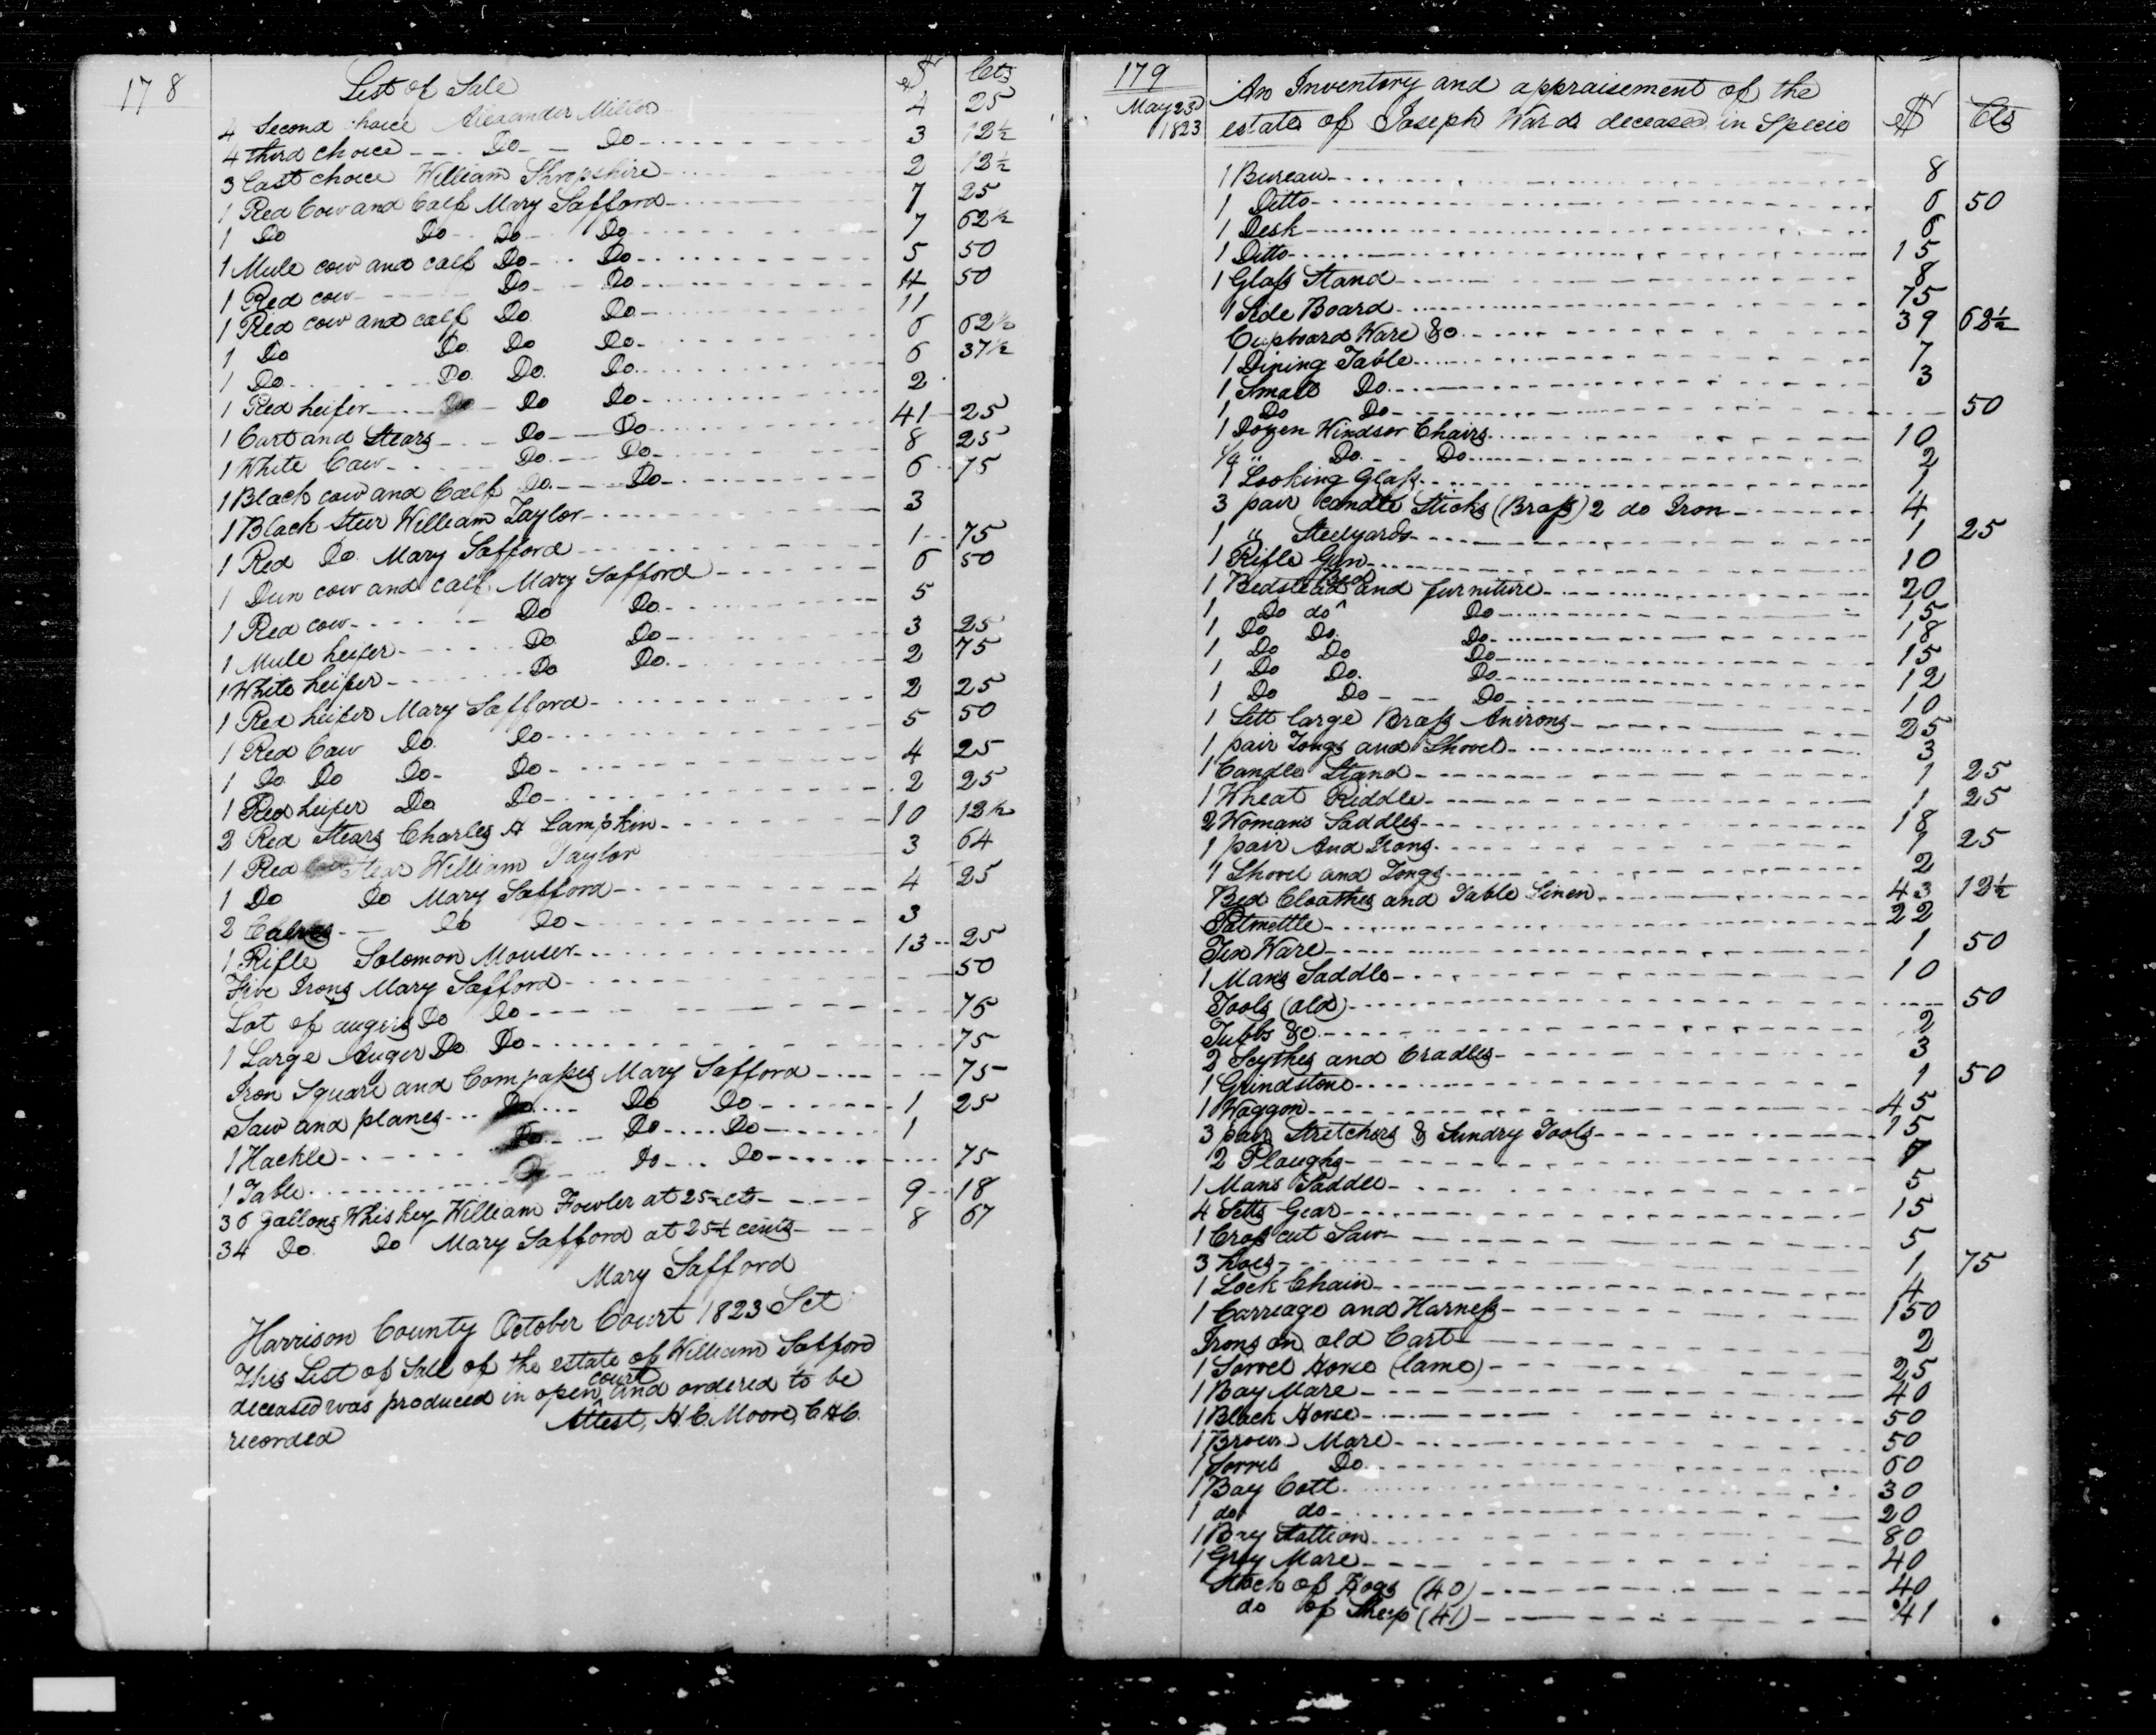 178
List of Sale $ Cts
4 Second choice Alexander Miller 4 25
4 third choice Do Do 3 12½
3 last choice William Shropshire 2 12½
1 Red Cow and Calf Mary Safford 7 25
1 Do Do Do Do 7 62½
1 Mule cow and calf Do Do 5 50
1 Red cow Do Do 4 50
1 Red cow and calf Do Do 11
1 Do Do Do Do 6 62½
1 Do Do Do Do 6 37½
1 Red heifer Do Do Do 2
1 Cart and Stears Do Do 41 25
1 White Cow Do Do 8 25
1 Black cow and Calf Do Do 6 75
1 Black Steer William Taylor 3
1 Red Do Mary Safford 1 75
1 Dun cow and calf Mary Safford 6 50
1 Red cow Do Do 5
1 Mule heifer Do Do 3 25
1 White heifer Do Do 2 75
1 Red heifer Mary Safford 2 25
1 Red Cow Do Do 5 50
1 Do Do Do Do 4 25
1 Red heifer Do Do 2 25
2 Red Stears Charles A Lampkin 10 12½
1 Red Stear William Taylor 3 64
1 Do Do Mary Safford 4 25
2 Calves Do Do 3
1 Rifle Solomon Mouser 13 25
Five Irons Mary Safford 50
Lot of augers Do Do 75
1 Large Auger Do Do 75
Iron Square and Compasses Mary Safford 75
Saw and planes Do Do Do 1 25
1 Hackle Do Do Do 1
1 Table Do Do Do 75
36 gallons Whiskey William Fowler at 25½ cts 9 18
34 Do Do Mary Safford at 25½ cents 8 67
Mary Safford
Harrison County October Court 1823 Sct
This List of Sale of the estate of William Safford
deceased was produced in open court and ordered to be
recorded Attest, H. C. Moore, C H C.
179
May 23d 1823
An Inventory and appraisement of the
estate of Joseph Ward deceased in Specie $ Cts
1 Bureau 8
1 Ditto 6 50
1 Desk 6
1 Ditto 15
1 Glass Stand 8
1 Side Board 75
Cupboard Ware &c 39 62½
1 Dining Table 7
1 Small Do 3
1 Do Do 50
1 Dozen Windsor Chairs 10
¼ " Do Do 2
1 Looking Glass 1
3 pair candle Sticks (Brass) 2 do Iron 4
1 " Steelyards 1 25
1 Rifle Gun 10
1 Bedstead Bed and furniture 20
1 Do do Do 15
1 Do Do Do 18
1 Do Do Do 15
1 Do Do Do 12
1 Do Do Do 10
1 Sett large Brass Anirons 25
1 pair Tongs and Shovel 3
1 Candle Stand 1 25
1 Wheat Riddle 1 25
2 Womans Saddles 18
1 pair And Irons 1 25
1 Shovel and Tongs 2
Bed Cloathes and Table Linen 43 12½
Potmettle 22
Tin Ware 1 50
1 Mans Saddle 10
Tools (old) 50
Tubbs &c 2
2 Scythes and Cradles 3
1 Grindstone 1 50
1 Waggon 45
3 pair Stretchers & Sundry Tools 15
2 Ploughs 7
1 Mans Saddle 5
4 Setts Gear 15
1 Cross cut Saw 5
3 hoes 1 75
1 Lock Chain 4
1 Carriage and Harness 150
Irons on old Cart 2
1 Sorrel Horse (lame) 25
1 Bay Mare 40
1 Black Horse 50
1 Brown Mare 50
1 Sorrel Do 60
1 Bay Colt 30
1 do do 20
1 Bay Stallion 80
1 Gray Mare 40
Stock of Hogs (40) 40
do of Sheep (41) 41